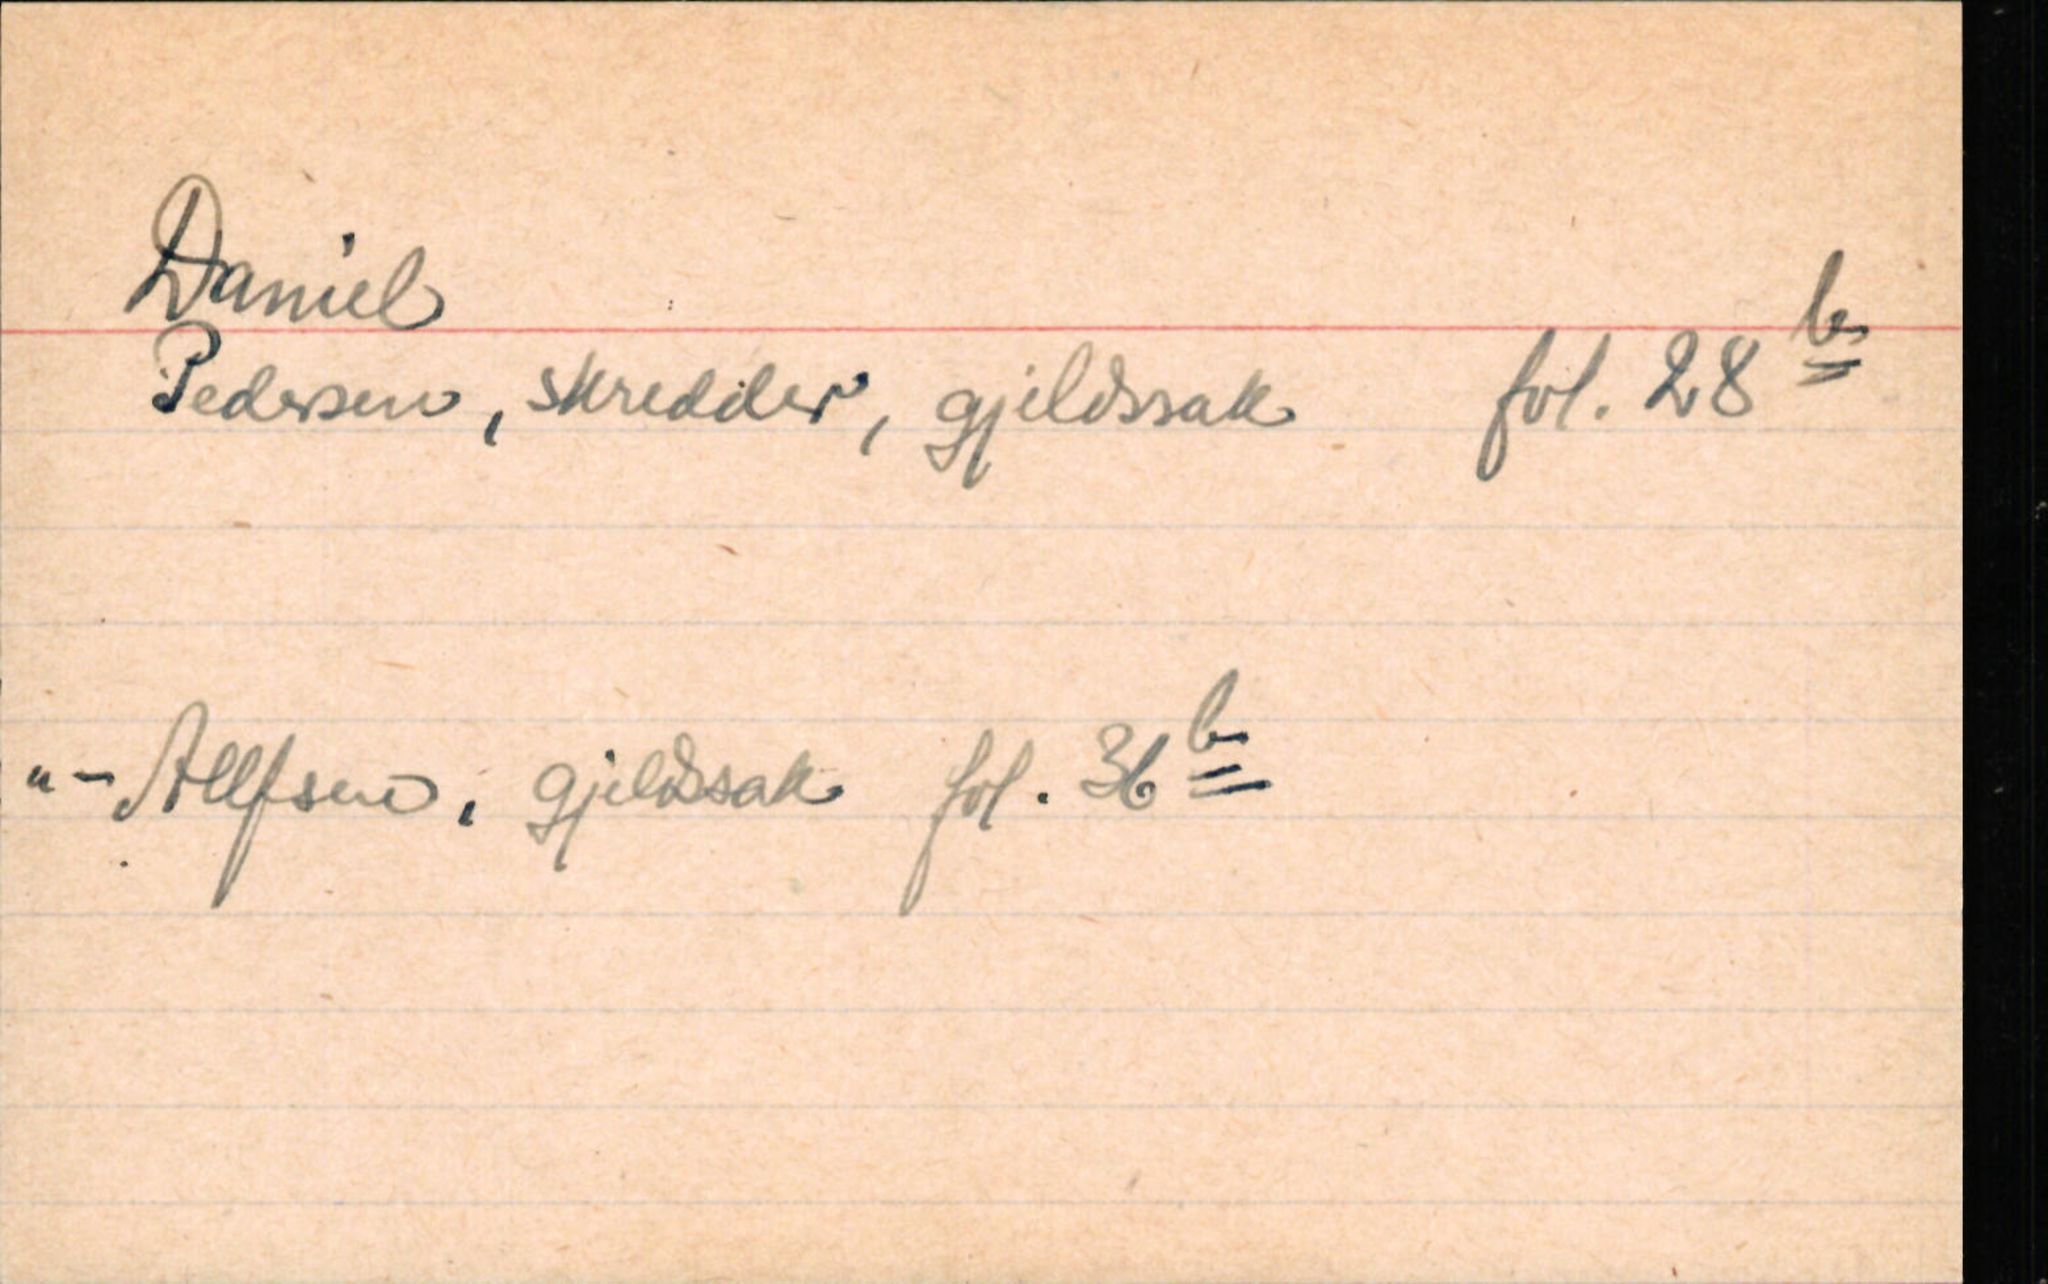 Daniel
Pedersen, skredder, gjeldssak fol. 28 b
"- Allfsen, gjeldssak fol. 36 b